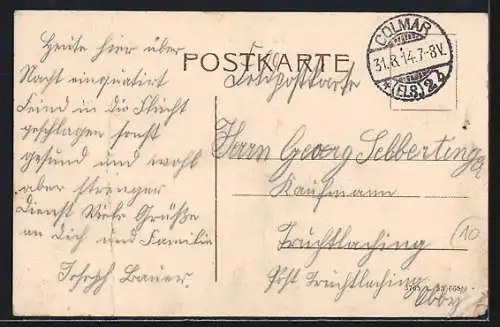 POSTKARTE
Feldpostkarte
COLMAR
31.8.14.7-8V.
* (ELS.) 2 b
Heute hier über
Nacht einquatirt
Feind in die Flucht
geschlagen sonst
gesund und wohl
aber strenger
Dienst Viele Grüße
an Dich und Familie
Joseph Bauer.
Herrn Georg Selbertinger
Kaufmann
Truchtlaching
Post Truchtlaching
Obby
10